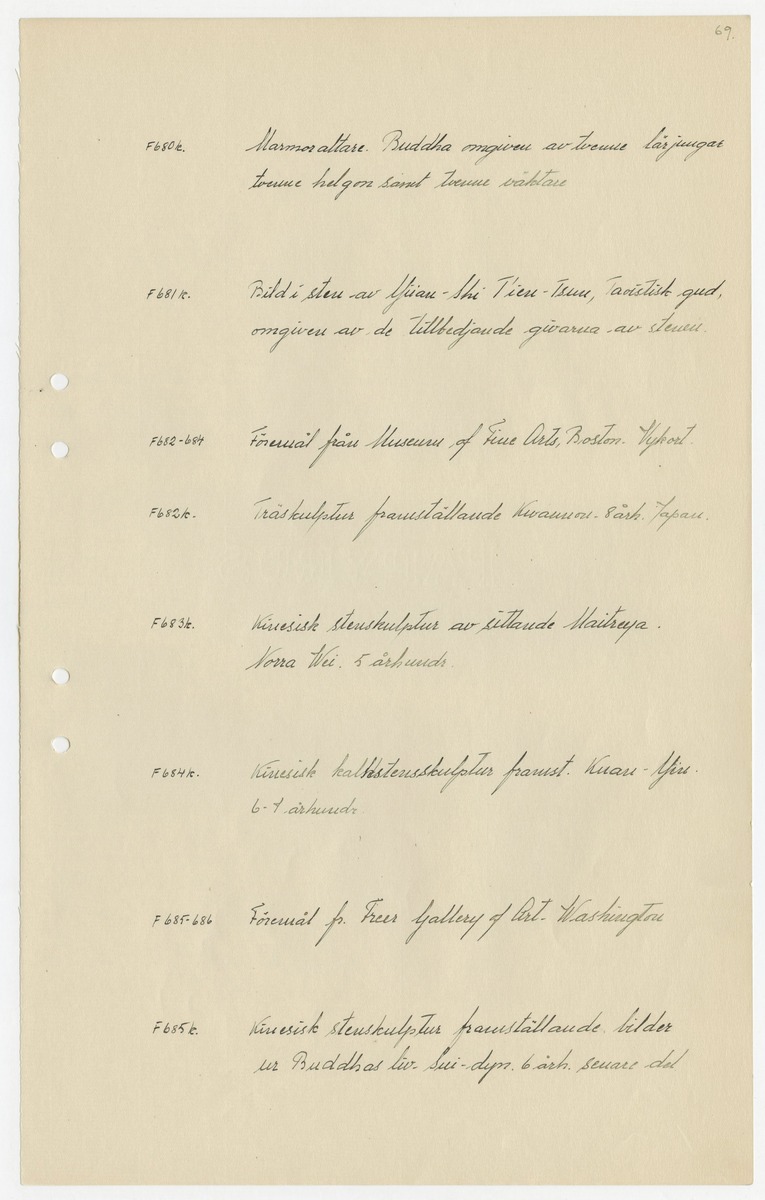 69.
F680k. Marmoraltare. Buddha omgiven av tvenne lärjungar
tvenne helgon samt tvenne väktare
F681k. Bild i sten av Yüan-Shi T'ien-Tsun, Taoistisk gud,
omgiven av de tillbedjande givarna av stenen.
F682-684 Föremål från Museum of Fine Arts, Boston. Vykort.
F682k. Träskulptur framställande Kwannon. 8 årh. Japan.
F683k. Kinesisk stenskulptur av sittande Maitreya.
Norra Wei. 5 århundr.
F684k. Kinesisk kalkstensskulptur framst. Kuan-Yin.
6-7 århundr.
F685-686 Föremål fr. Freer Gallery of Art. Washington
F685k. Kinesisk stenskulptur framställande bilder
ur Buddhas liv. Sui-dyn. 6 årh. senare del